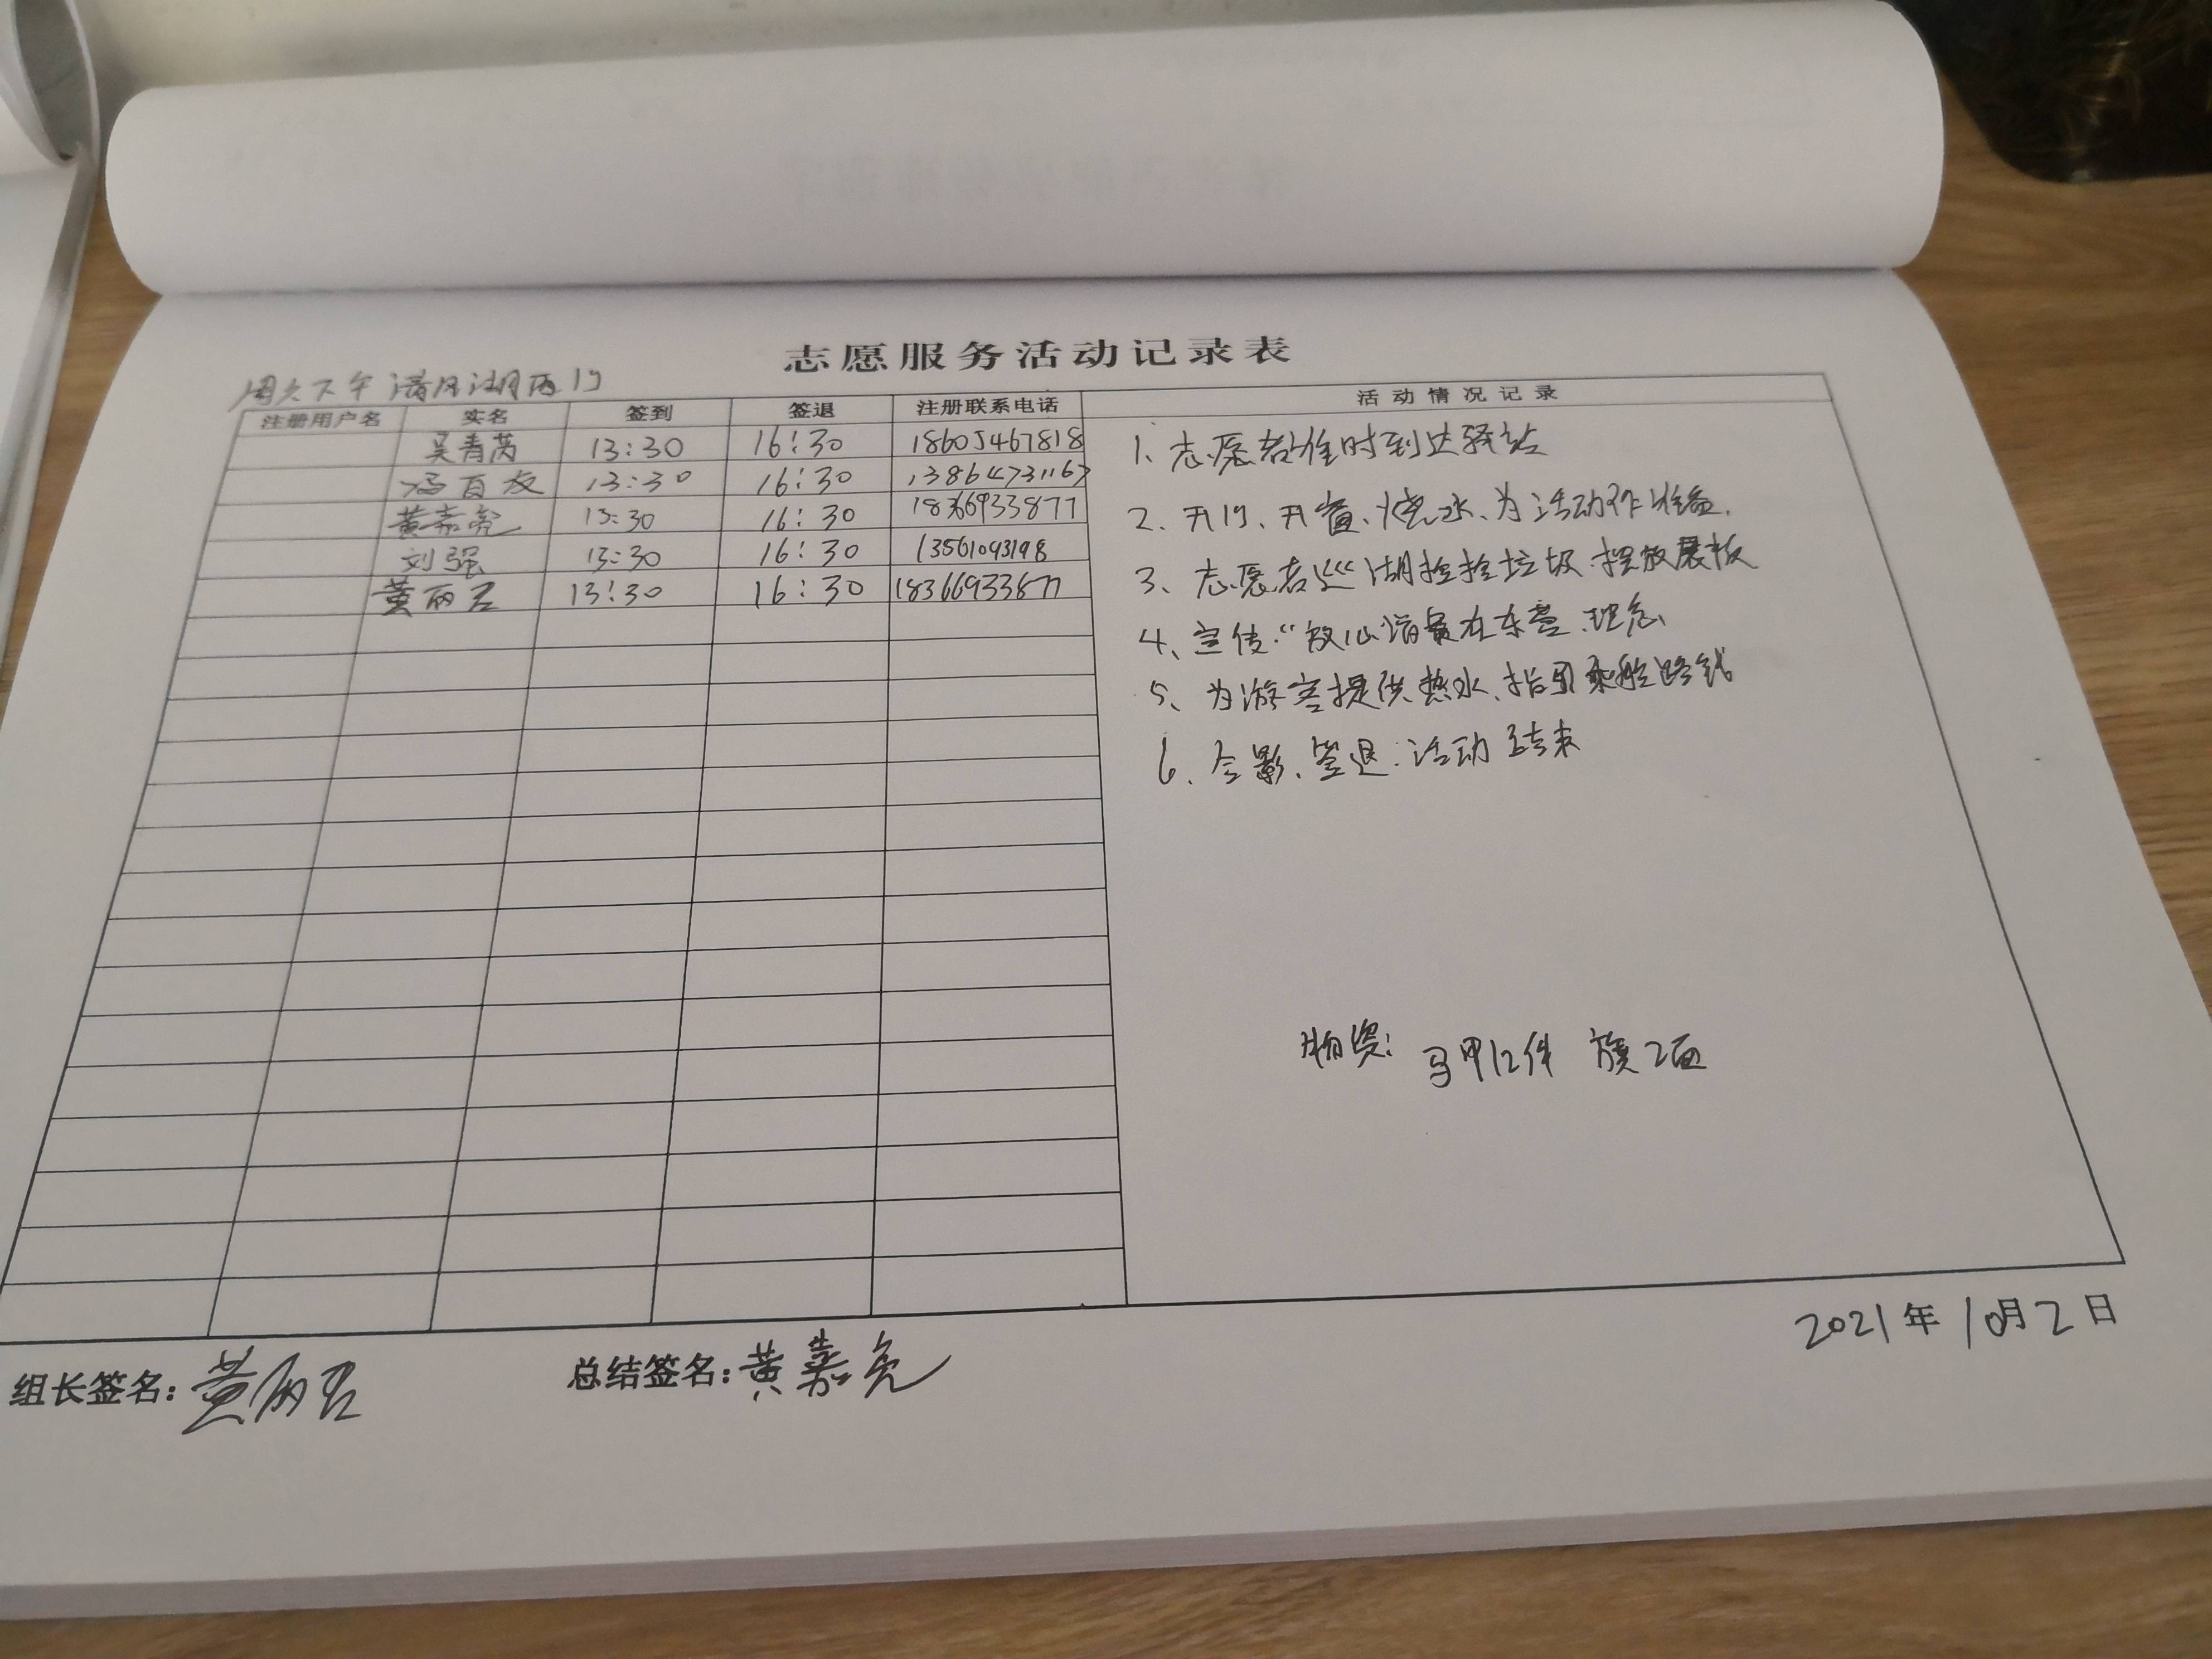 志愿服务活动记录表
周六下午 清风湖西门
注册用户名 实名 签到 签退 注册联系电话 活动情况记录
吴青芮 13:30 16:30 18605467818
冯百友 13:30 16:30
黄嘉亮 13:30 16:30 18366933877
刘强 13:30 16:30 13561093198
黄丽君 13:30 16:30 18366933877
1、志愿者准时到达驿站
2、开门、开窗、烧水、为活动作准备.
3、志愿者巡湖捡拴垃圾.摆放展板
4、宣传:“放心消费在东营、理念
5、为游客提供热水、指引乘船路线
6、合影、签退.活动结束
物资: 马甲12件 旗2面
2021年10月2日
组长签名:黄丽君 总结签名:黄嘉亮